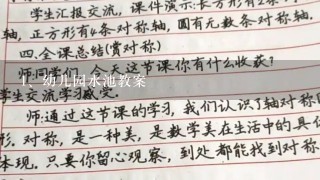 学生汇报交流，课件演示:长方形有2条
轴，正方形有4条对称轴，圆有无数条对称轴.
四.全课总结(赏对称)
师:同 今天这节课你有什么收获?
1. 幼儿园水池教案
学生交流学习
师:通过这节课的学习，我们认识了轴对称
形.对称，是一种美，是数学美在生活中的具
体现.只要你留心观察，到处都能找到对称